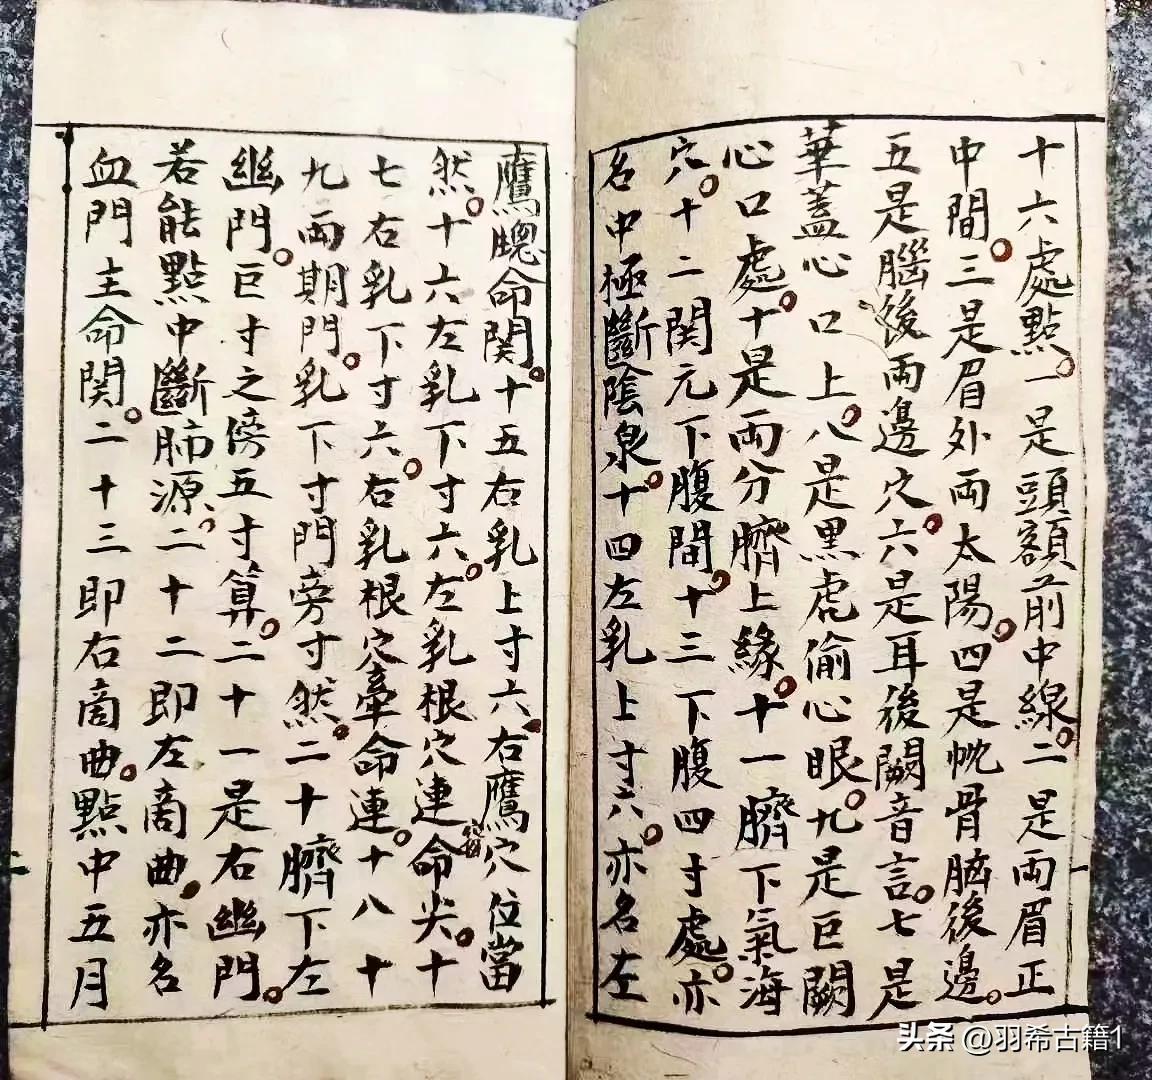 十六處點。一是頭額前中線。二是两眉正
中間。三是眉外両太陽。四是枕骨脳後邊。
五是腦後両邊穴。六是耳後闕音言。七是
華蓋心口上。八是黒虎偷心眼。九是巨闕
心口處。十是両分臍上緣。十一臍下氣海
穴。十二関元下腹間。十三下腹四寸處。亦
名中極斷陰泉。十四左乳上寸六。亦名左
鷹䆪命関。十五右乳上寸六。右鷹穴位當
然。十六左乳下寸六。左乳根穴連命尖。十
七右乳下寸六。右乳根穴牽命連。十八十
九両期門。乳下寸門旁寸然。二十臍下左
幽門。巨寸之傍五寸算。二十一是右幽門。
若能點中斷肺源。二十二即左商曲。亦名
血門主命関。二十三即右商曲。點中五月
头条 @羽希古籍1